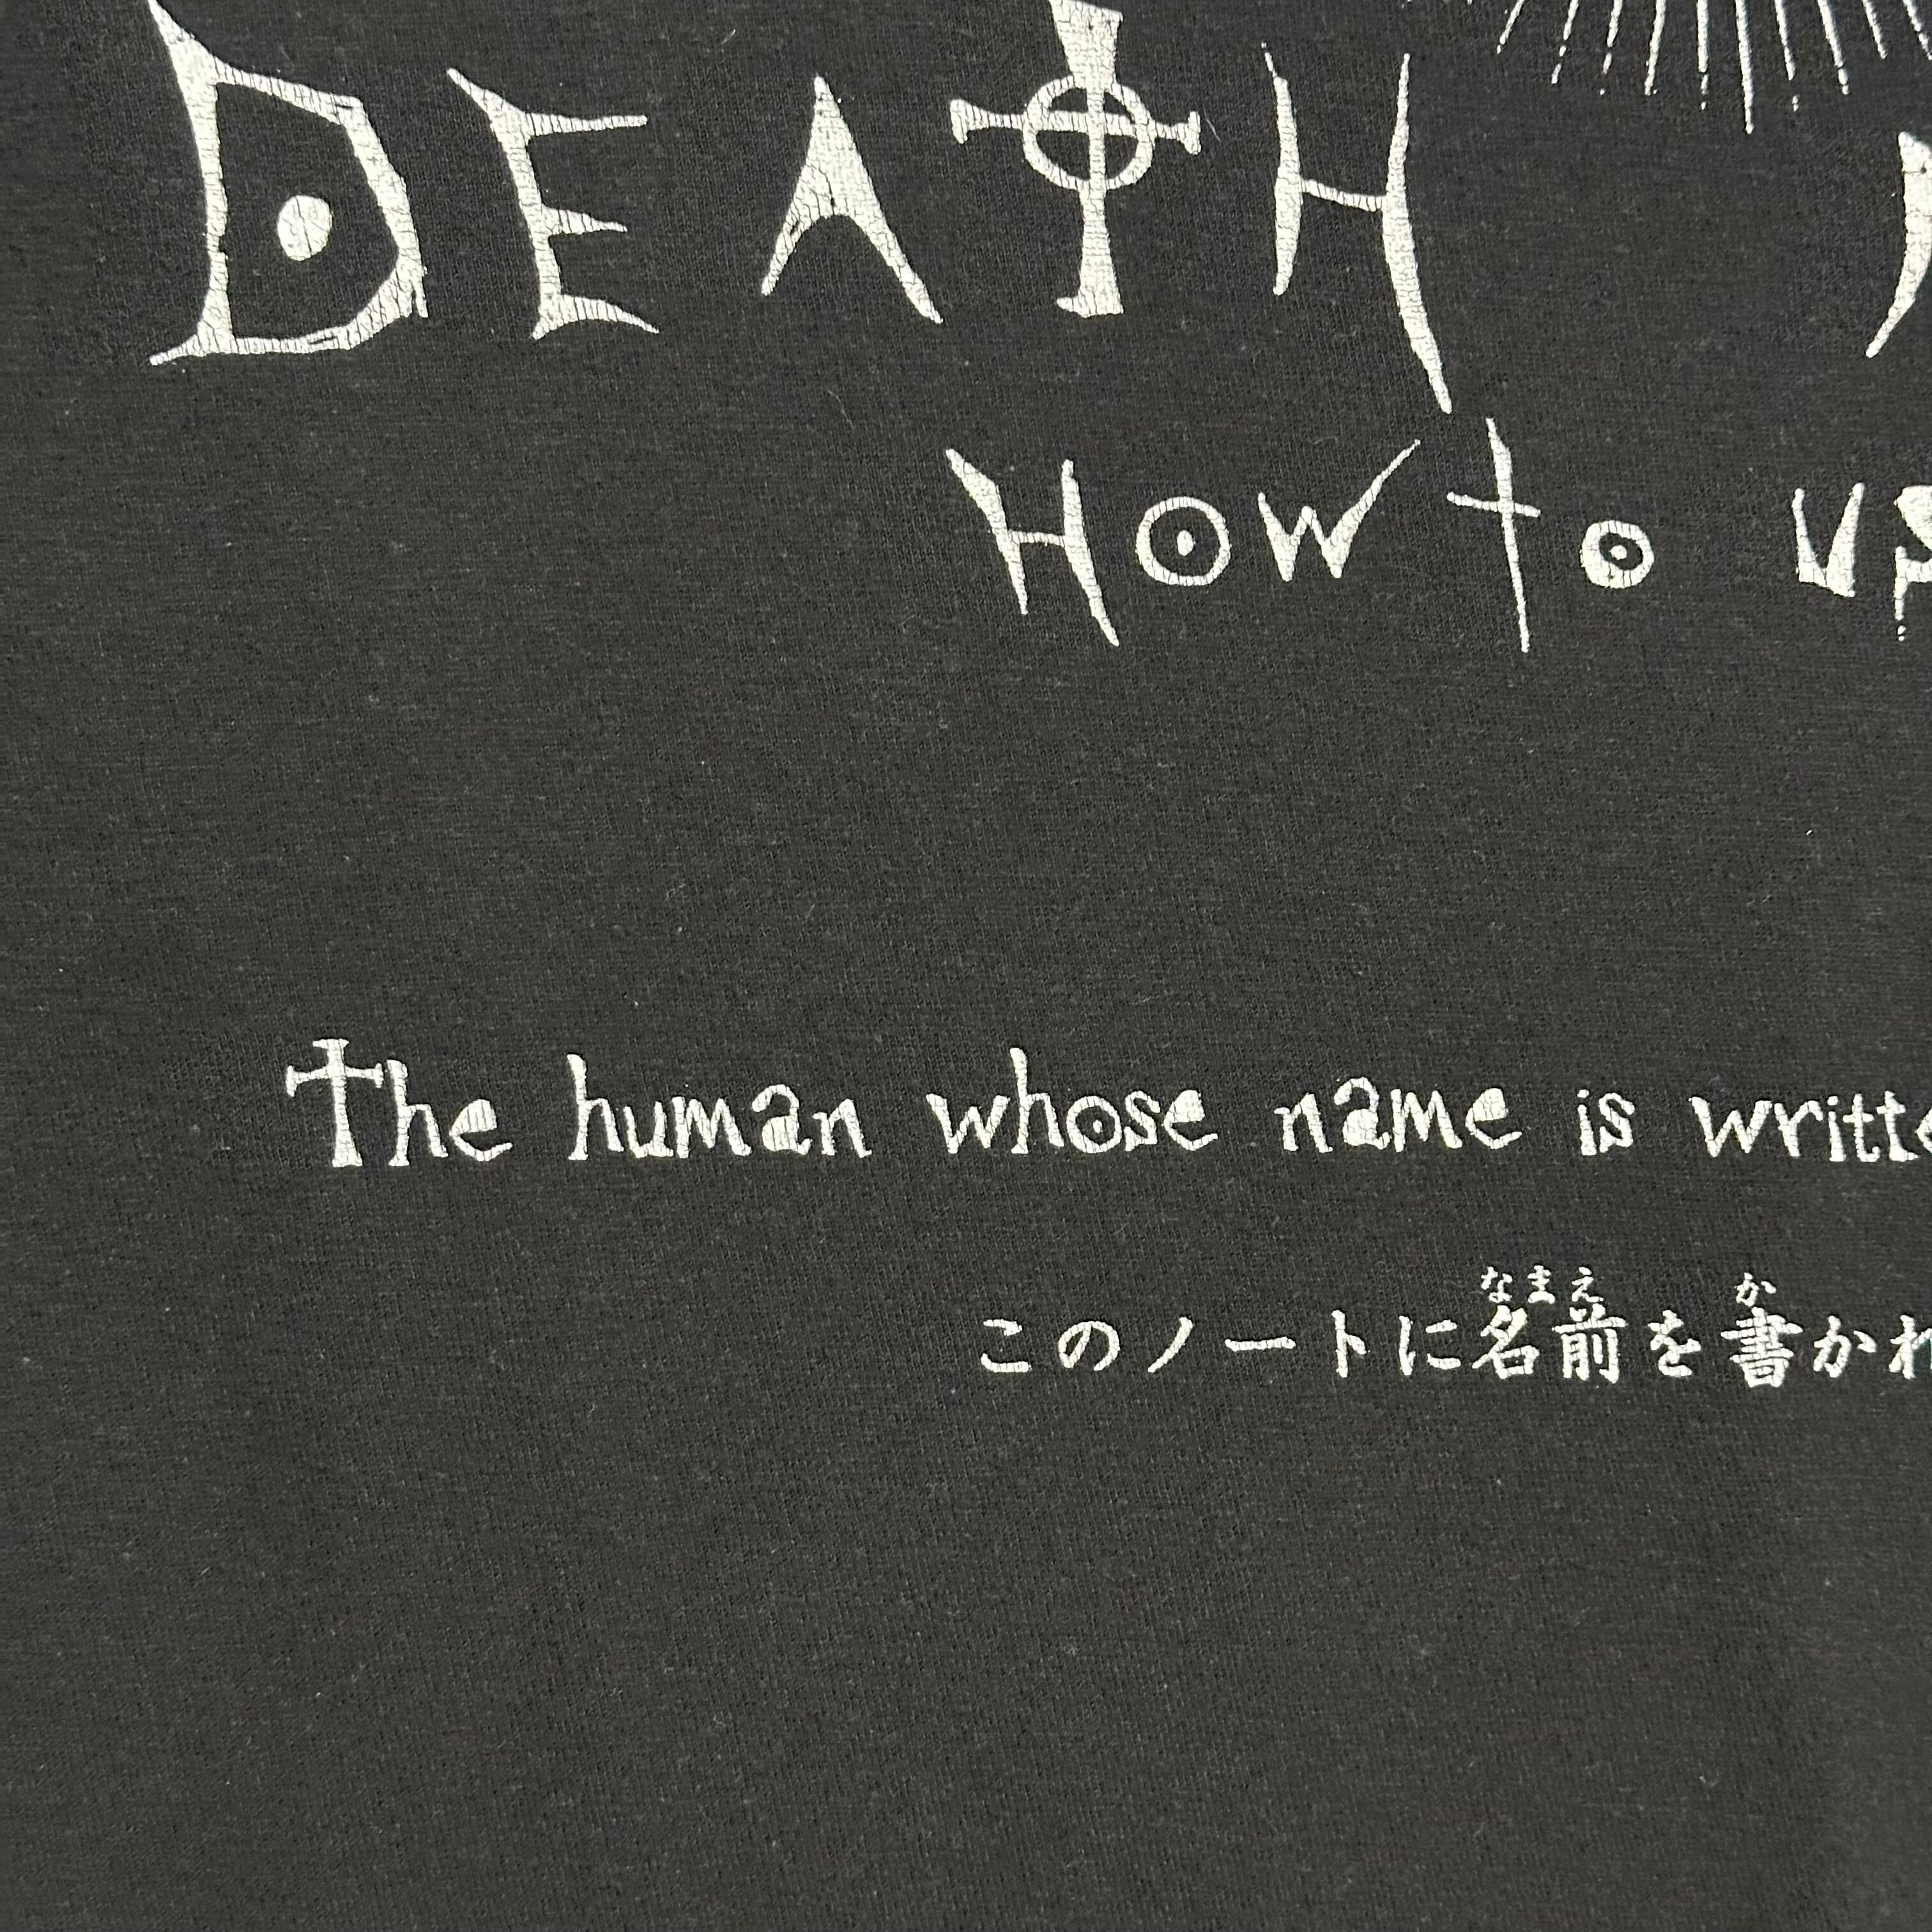 DEATH
How to us
The human whose name is writte
このノートに名前を書かれ